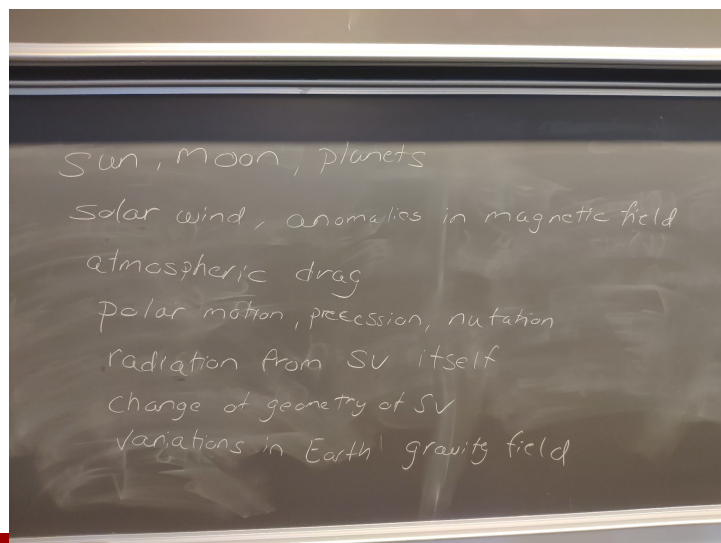 Sun, Moon, planets
Solar wind, anomalies in magnetic field
atmospheric drag
polar motion, precession, nutation
radiation from SV itself
change of geometry of SV
variations in Earth gravity field